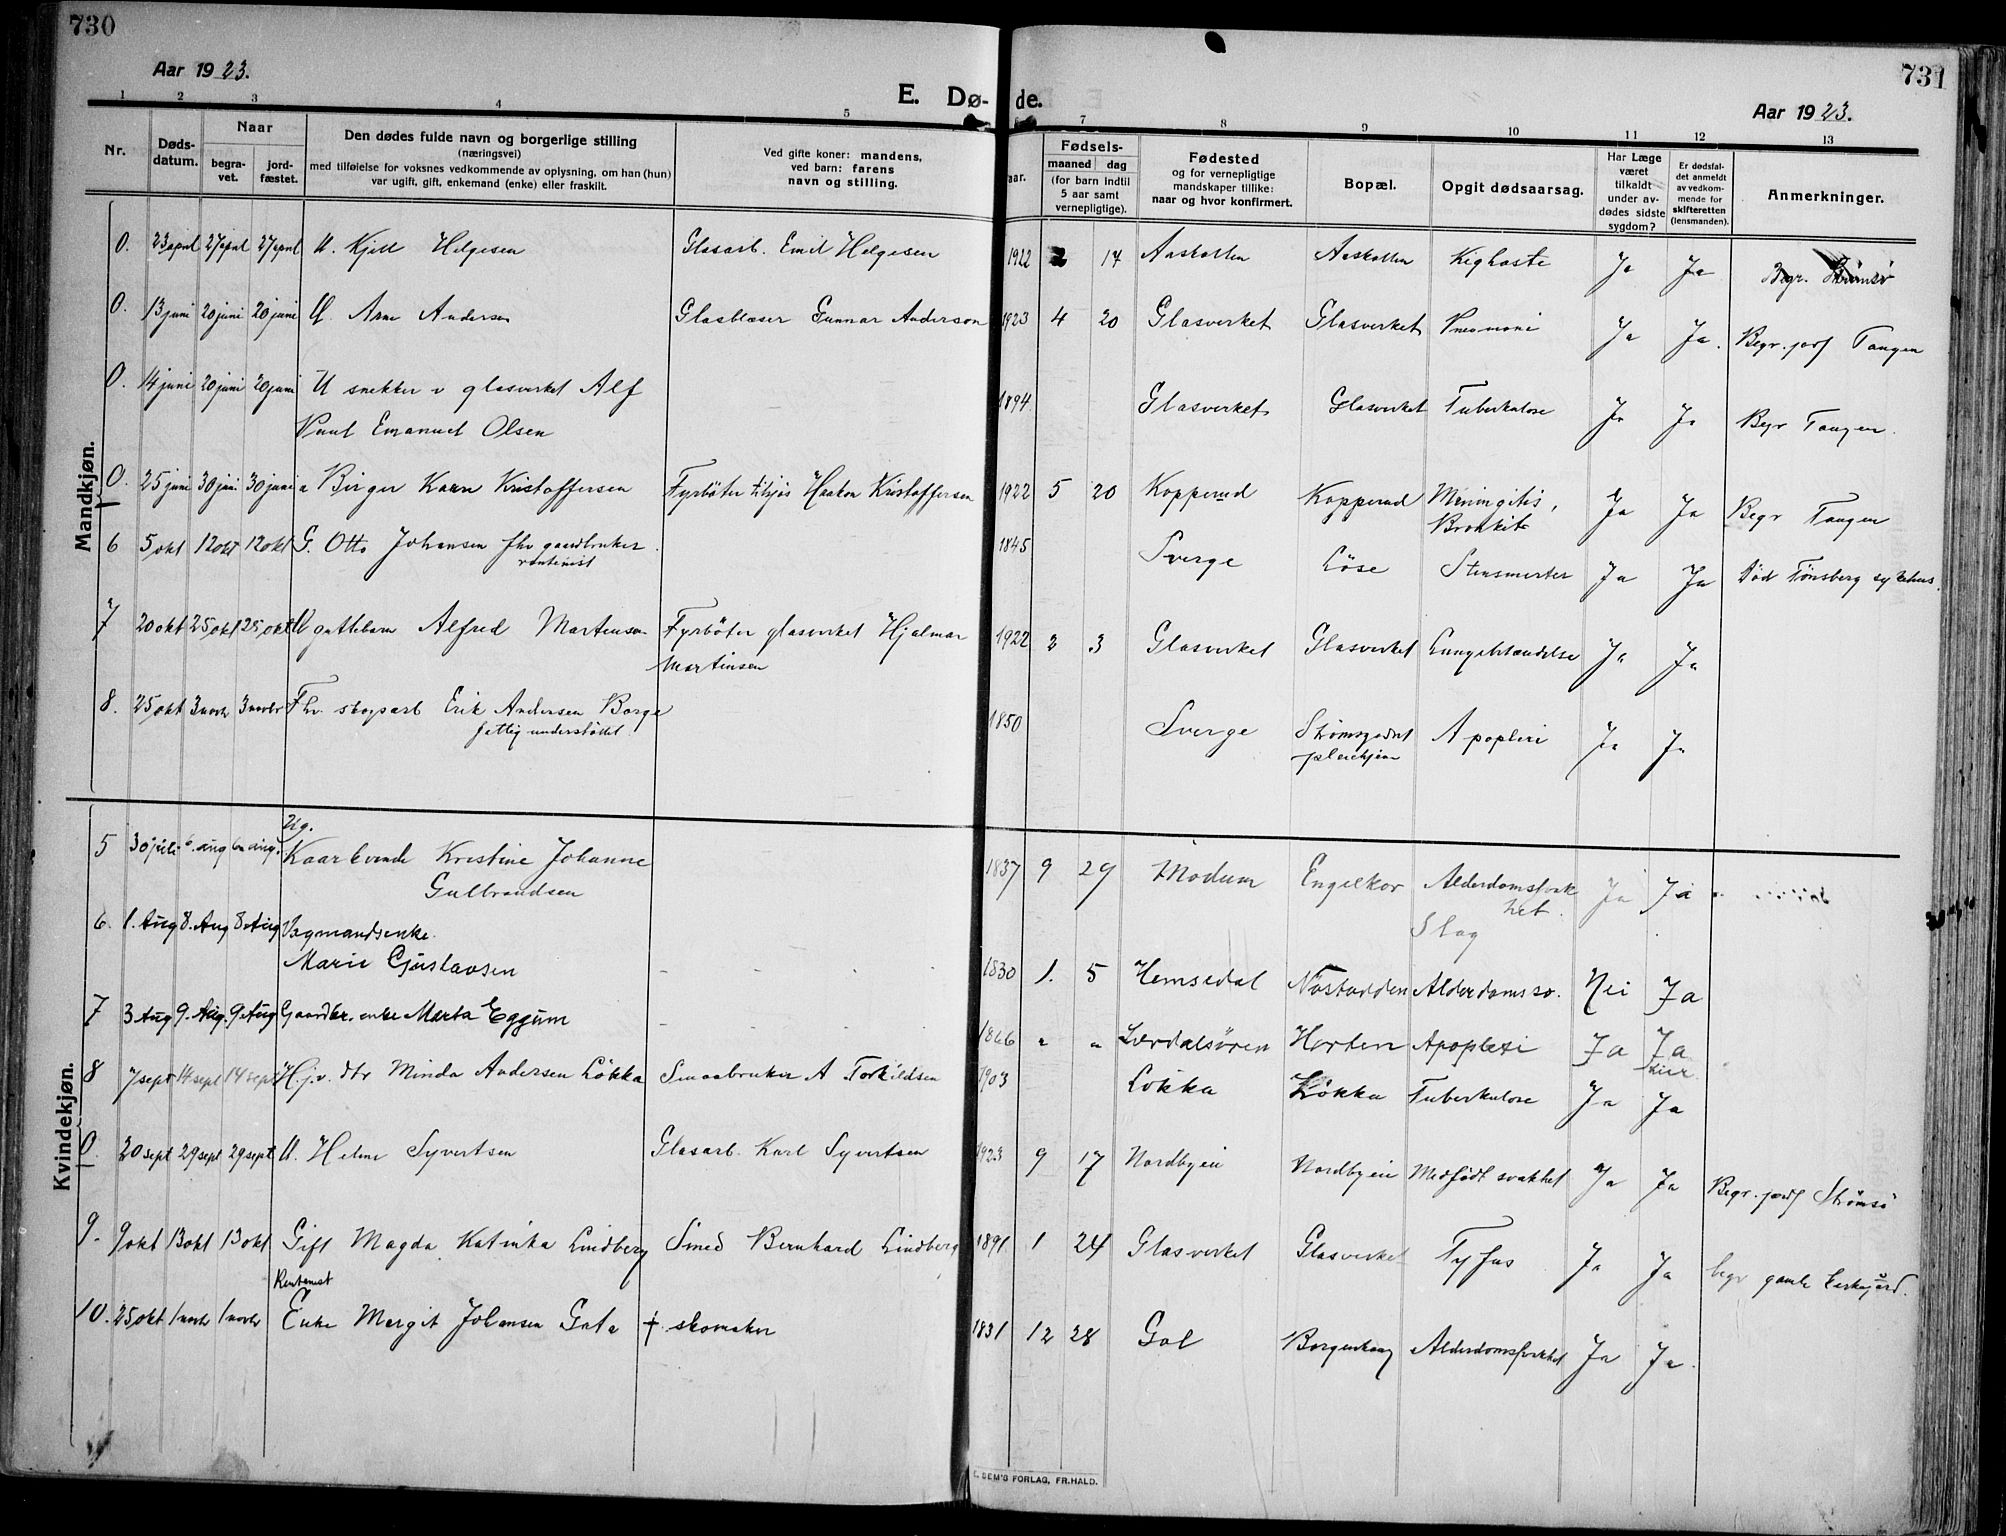 730
Aar 1923.
E. Dø-
1 2 3 4 5
Nr.
Døds-
datum.
Naar
begra-
vet.
jord-
fæstet.
Den dødes fulde navn og borgerlige stilling
(næringsvei)
med tilføielse for voksnes vedkommende av oplysning, om han (hun)
var ugift, gift, enkemand (enke) eller fraskilt.
Ved gifte koner: mandens,
ved barn: farens
navn og stilling.
Mandkjøn.
0. 23 april 27 april 27 april U. Kjell Helgesen Glasarb. Emil Helgesen
0. 13 juni 20 juni 20 juni U. Arne Andersen Glasblæser Gunnar Anderson
0. 14 juni 20 juni 20 juni U snekker v glasverket Alf
Paul Emanuel Olsen
0. 25 juni 30 juni 30 juni Birger Kaare Kristoffersen Fyrbøter tilsjøs Haakon Kristoffersen
6 5 okt 12 okt 12 okt G. Otto Johansen fhv gaardbruker
rentenist
7 20 okt 25 okt 25 okt U guttebarn Alfred Martinsen Fyrbøter glasverket Hjalmar
Martinsen
8. 25 okt 3 novbr 3 novbr Fhv. skogsarb Erik Andersen Borge
fattig understøttet
Kvindekjøn.
Ug.
5 30 juli 6. aug 6 aug. Kaarkvinde Kristine Johanne
Gulbrandsen
6. 1. Aug 8. Aug 8 Aug Vognmandsenke.
Marie Gjustavsen
7 3 Aug 9. Aug. 9 Aug Gaardbr. enke Marta Eggum
8 7 sept 14 sept 14 sept Hj.v. dtr Minda Andersen Løkka Smaabruker A Torkildsen
0. 20 sept 29 sept 29 sept U. Helene Syvertsen Glasarb. Karl Syvertsen
9. 9 okt 13 okt 13 okt Gift Magda Katinka Lindberg Smed Bernhard Lindberg
Rentenist
10. 25 okt 1 novbr 1 novbr Enke Margit Johansen Gata † skomaker
731
Aar 1923.
de.
7 8 9 10 11 12 13
aar.
Fødsels-
maaned dag
(for barn indtil
5 aar samt
vernepligtige).
Fødested
og for vernepligtige
mandskaper tillike:
naar og hvor konfirmert.
Bopæl.
Opgit dødsaarsag.
Har Læge
været
tilkaldt
under av-
dødes sidste
sygdom?
Er dødsfal-
det anmeldt
av vedkom-
mende for
skifteretten
(lensmanden).
Anmerkninger.
1922 14 Aaskollen Aaskollen Kighoste Ja Ja Begr. Strømsø
1923 4 20 Glasverket Glasverket Pneumoni Ja Ja. Begr. jordf Tangen
1894 Glasverket Glasverket Tuberkulose Ja Ja Begr Tangen.
1922 5 20 Kopperud Kopperud Meningitis,
Bronkit Ja Ja Begr Tangen
1845 Sverge Løse Ja Ja Død Tønsberg sykehus.
1922 2 3 Glasverket Glasverket Lungebetændelse Ja Ja
1850 Sverge Strømsgodset
pleiehjem Apoplexi Ja Ja
1837 9 29 Modum Alderdomssvak
het. Ja Ja
Slag
1830 1. 5 Hemsedal Nøstodden Alderdomssv. Nei Ja
1866 " " Lærdalsøren Horten Apoplexi Ja Ja
Lier
1903 Løkka Løkka Tuberkulose Ja Ja
1923 9 17 Nordbyeie Nordbyeie Medfødt svakhet Ja Ja Begr. jordf Strømsø
1891 1 24 Glasverket Glasverket Tyfus Ja Ja begr gamle kirkegård.
1831 12 28 Gol Alderdomssvakhet Ja Ja.
SEM'S FORLAG, FR.HALD.